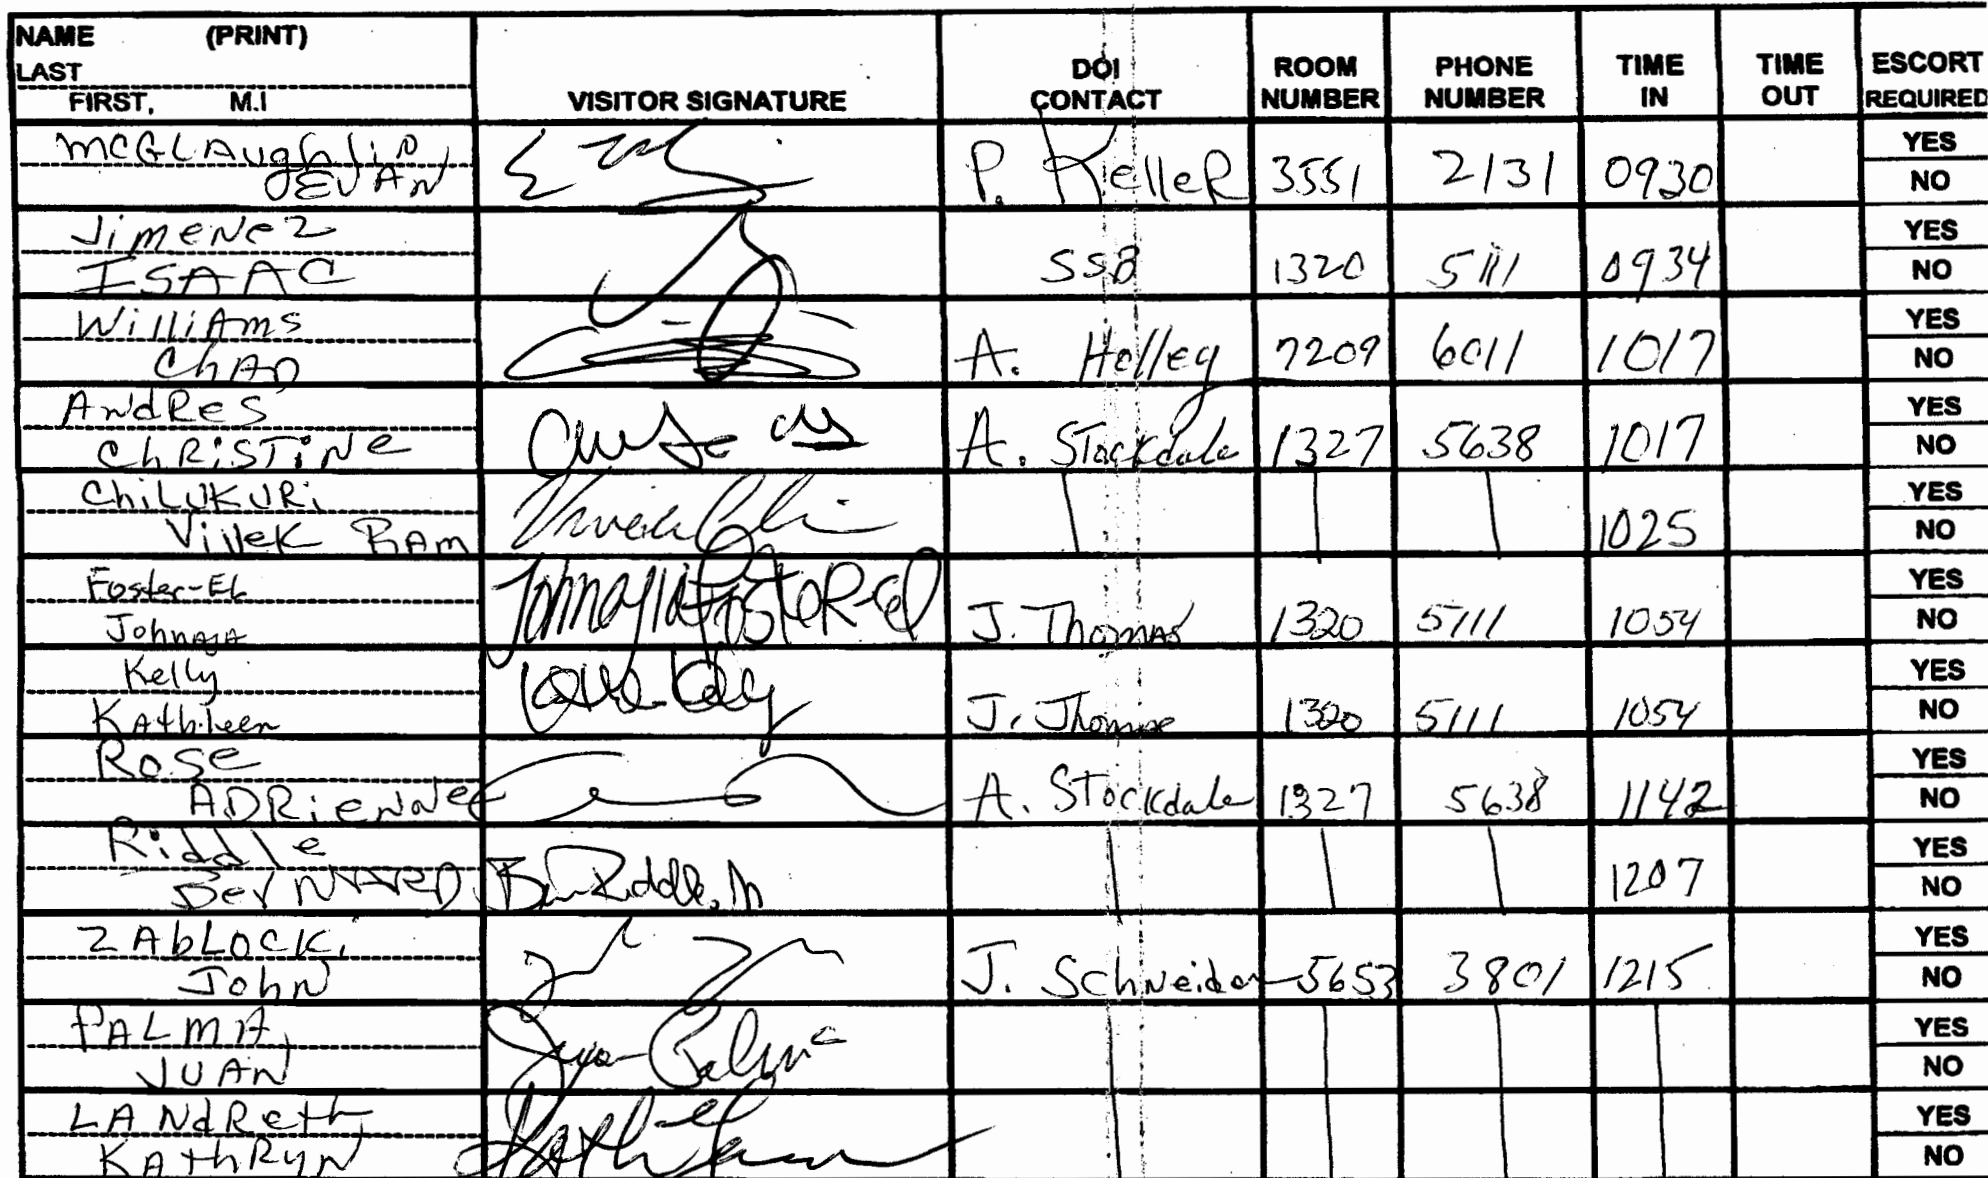 NAME (PRINT)
LAST
FIRST, M.I
VISITOR SIGNATURE
DOI CONTACT
ROOM NUMBER
PHONE NUMBER
TIME IN
TIME OUT
ESCORT REQUIRED
McGLAughlin, EVAN P. KelleR 3551 2131 0930 YES NO
JimeNez ISAAC SSB 1320 5111 0934 YES NO
WilliAms ChAD A. Holley 7209 6011 1017 YES NO
ANdReS ChRiSTiNe A. Stockdale 1327 5638 1017 YES NO
ChiLUKURi Vivek RAm 1025 YES NO
Foster-EL JohnajA JohnajiaFosteR-el J. Thomas 1320 5111 1054 YES NO
Kelly KAthleen J. Thomas 1320 5111 1054 YES NO
Rose ADRieNNe A. Stockdale 1327 5638 1142 YES NO
Riddle BerNARD Riddle, 1207 YES NO
ZAbLOCKi JohN J. SchNeider 5653 3801 1215 YES NO
PALMA, JUAN Juan Palma YES NO
LANdReth, KAthRyN YES NO